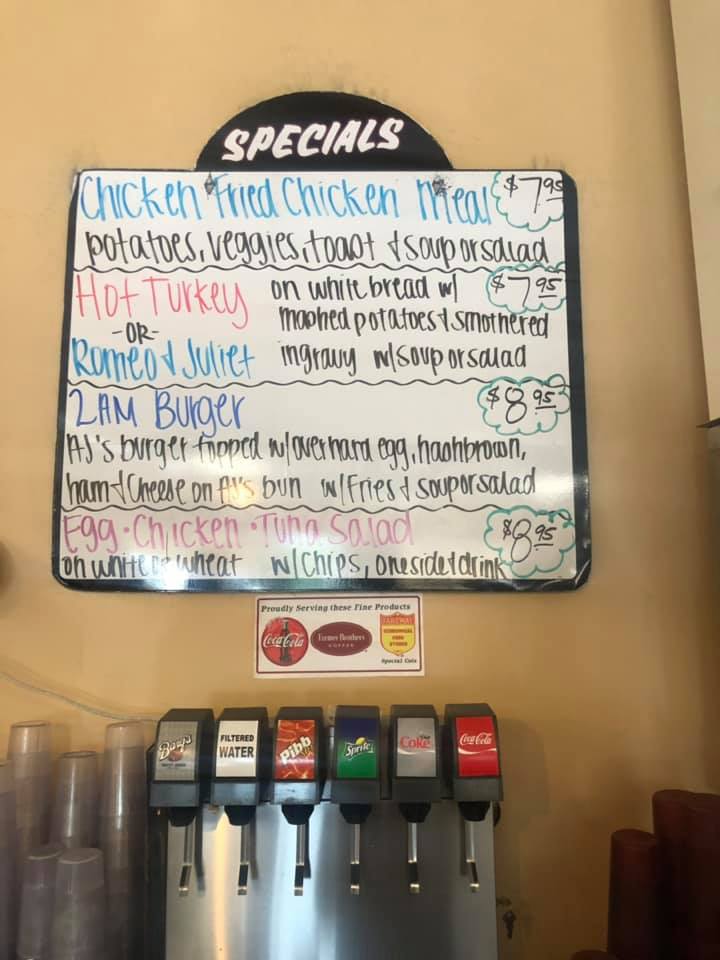 SPECIALS
Chicken Fried Chicken Meal $7.95
potatoes, veggies, toast & soup or salad
Hot Turkey on white bread w/ $7.95
-OR- mashed potatoes & smothered
Romeo & Juliet in gravy w/ soup or salad
2AM Burger $8.95
AJ's burger topped w/ overhard egg, hashbrown,
ham & Cheese on AJ's bun w/ Fries & soup or salad
Egg · Chicken · Tuna Salad $8.95
on white or wheat w/ Chips, one side & drink
Proudly Serving these Fine Products
Coca-Cola Farmer Brothers COFFEE FAREWAY ECONOMICAL FOOD STORES
Special Cuts
Barq's FILTERED WATER Pibb Sprite Diet Coke Coca-Cola